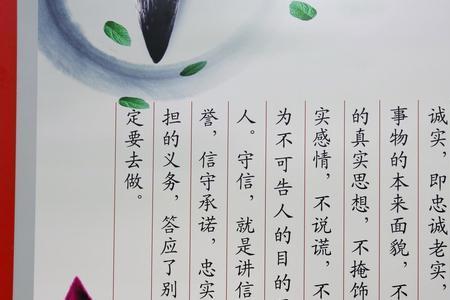 诚实，即忠诚老实，
事物的本来面貌，不
的真实思想，不掩饰
实感情，不说谎，不
为不可告人的目的
人。守信，就是讲信
誉，信守承诺，忠实
担的义务，答应了别
定要去做。